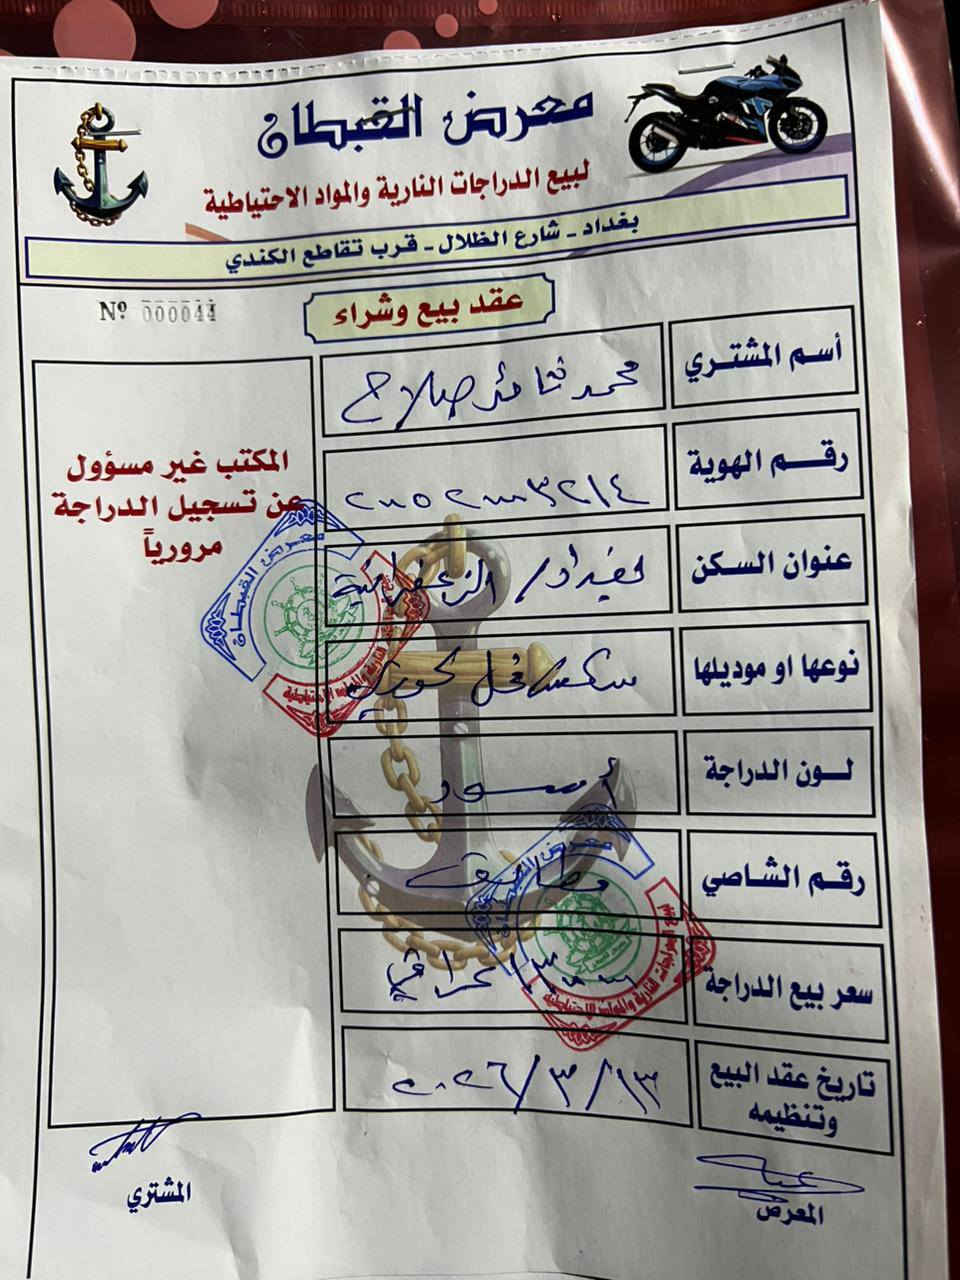 معرض القبطان
لبيع الدراجات النارية والمواد الاحتياطية
بغداد - شارع الظلال - قرب تقاطع الكندي
Nº 000044
عقد بيع وشراء
أسم المشتري محمد صلاح
رقم الهوية
عنوان السكن بغداد / الزعفرانية
نوعها او موديلها
لون الدراجة أسود
رقم الشاصي
سعر بيع الدراجة عراقي
تاريخ عقد البيع وتنظيمه ٢٠٢٦/٣/١٣
المكتب غير مسؤول
عن تسجيل الدراجة
مرورياً
معرض القبطان
معرض القبطان
لبيع الدراجات النارية والمواد الاحتياطية
المعرض
المشتري